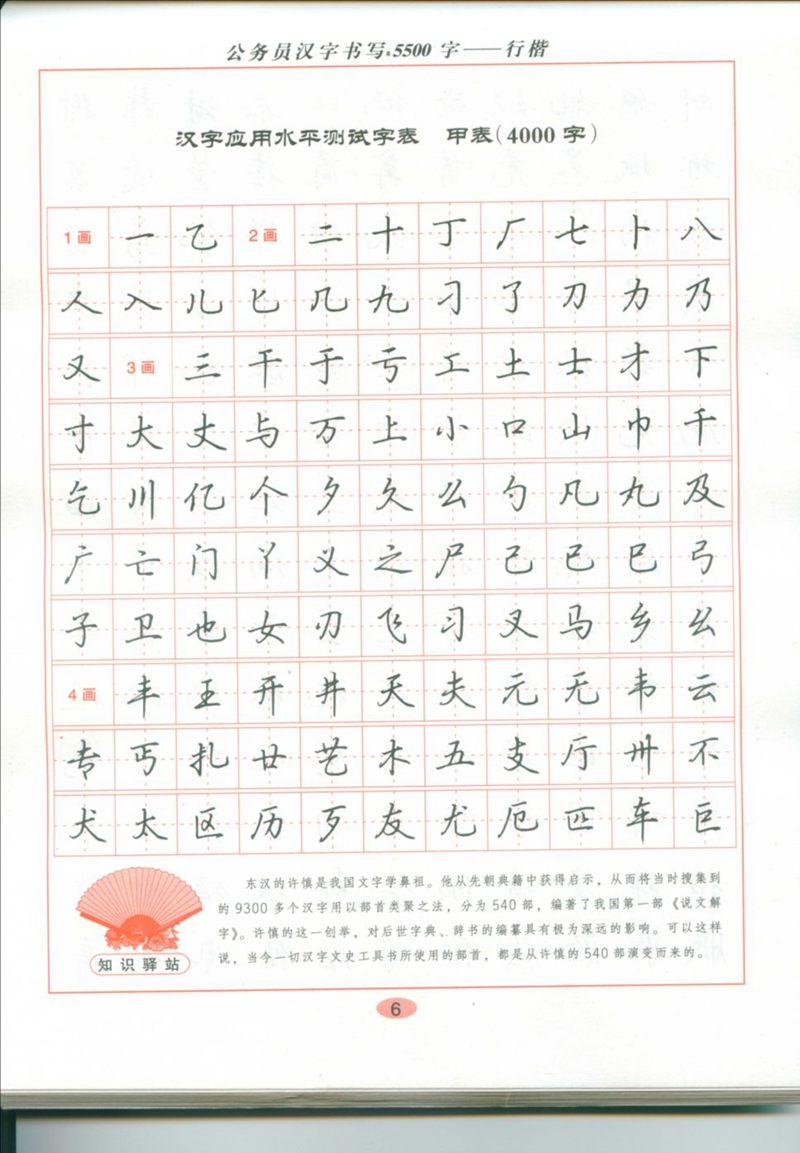 公务员汉字书写·5500字——行楷
汉字应用水平测试字表 甲表(4000字)
1画 一 乙 2画 二 十 丁 厂 七 卜 八
人 入 儿 匕 几 九 刁 了 刀 力 乃
又 3画 三 干 于 亏 工 土 士 才 下
寸 大 丈 与 万 上 小 口 山 巾 千
乞 川 亿 个 夕 久 么 勺 凡 丸 及
广 亡 门 丫 义 之 尸 己 已 巳 弓
子 卫 也 女 刃 飞 习 叉 马 乡 幺
4画 丰 王 开 井 天 夫 元 无 韦 云
专 丐 扎 廿 艺 木 五 支 厅 卅 不
犬 太 区 历 歹 友 尤 厄 匹 车 巨
东汉的许慎是我国文字学鼻祖。他从先朝典籍中获得启示，从而将当时搜集到
的9300多个汉字用以部首类聚之法，分为540部，编著了我国第一部《说文解
字》。许慎的这一创举，对后世字典、辞书的编纂具有极为深远的影响。可以这样
说，当今一切汉字文史工具书所使用的部首，都是从许慎的540部演变而来的。
知识驿站
6